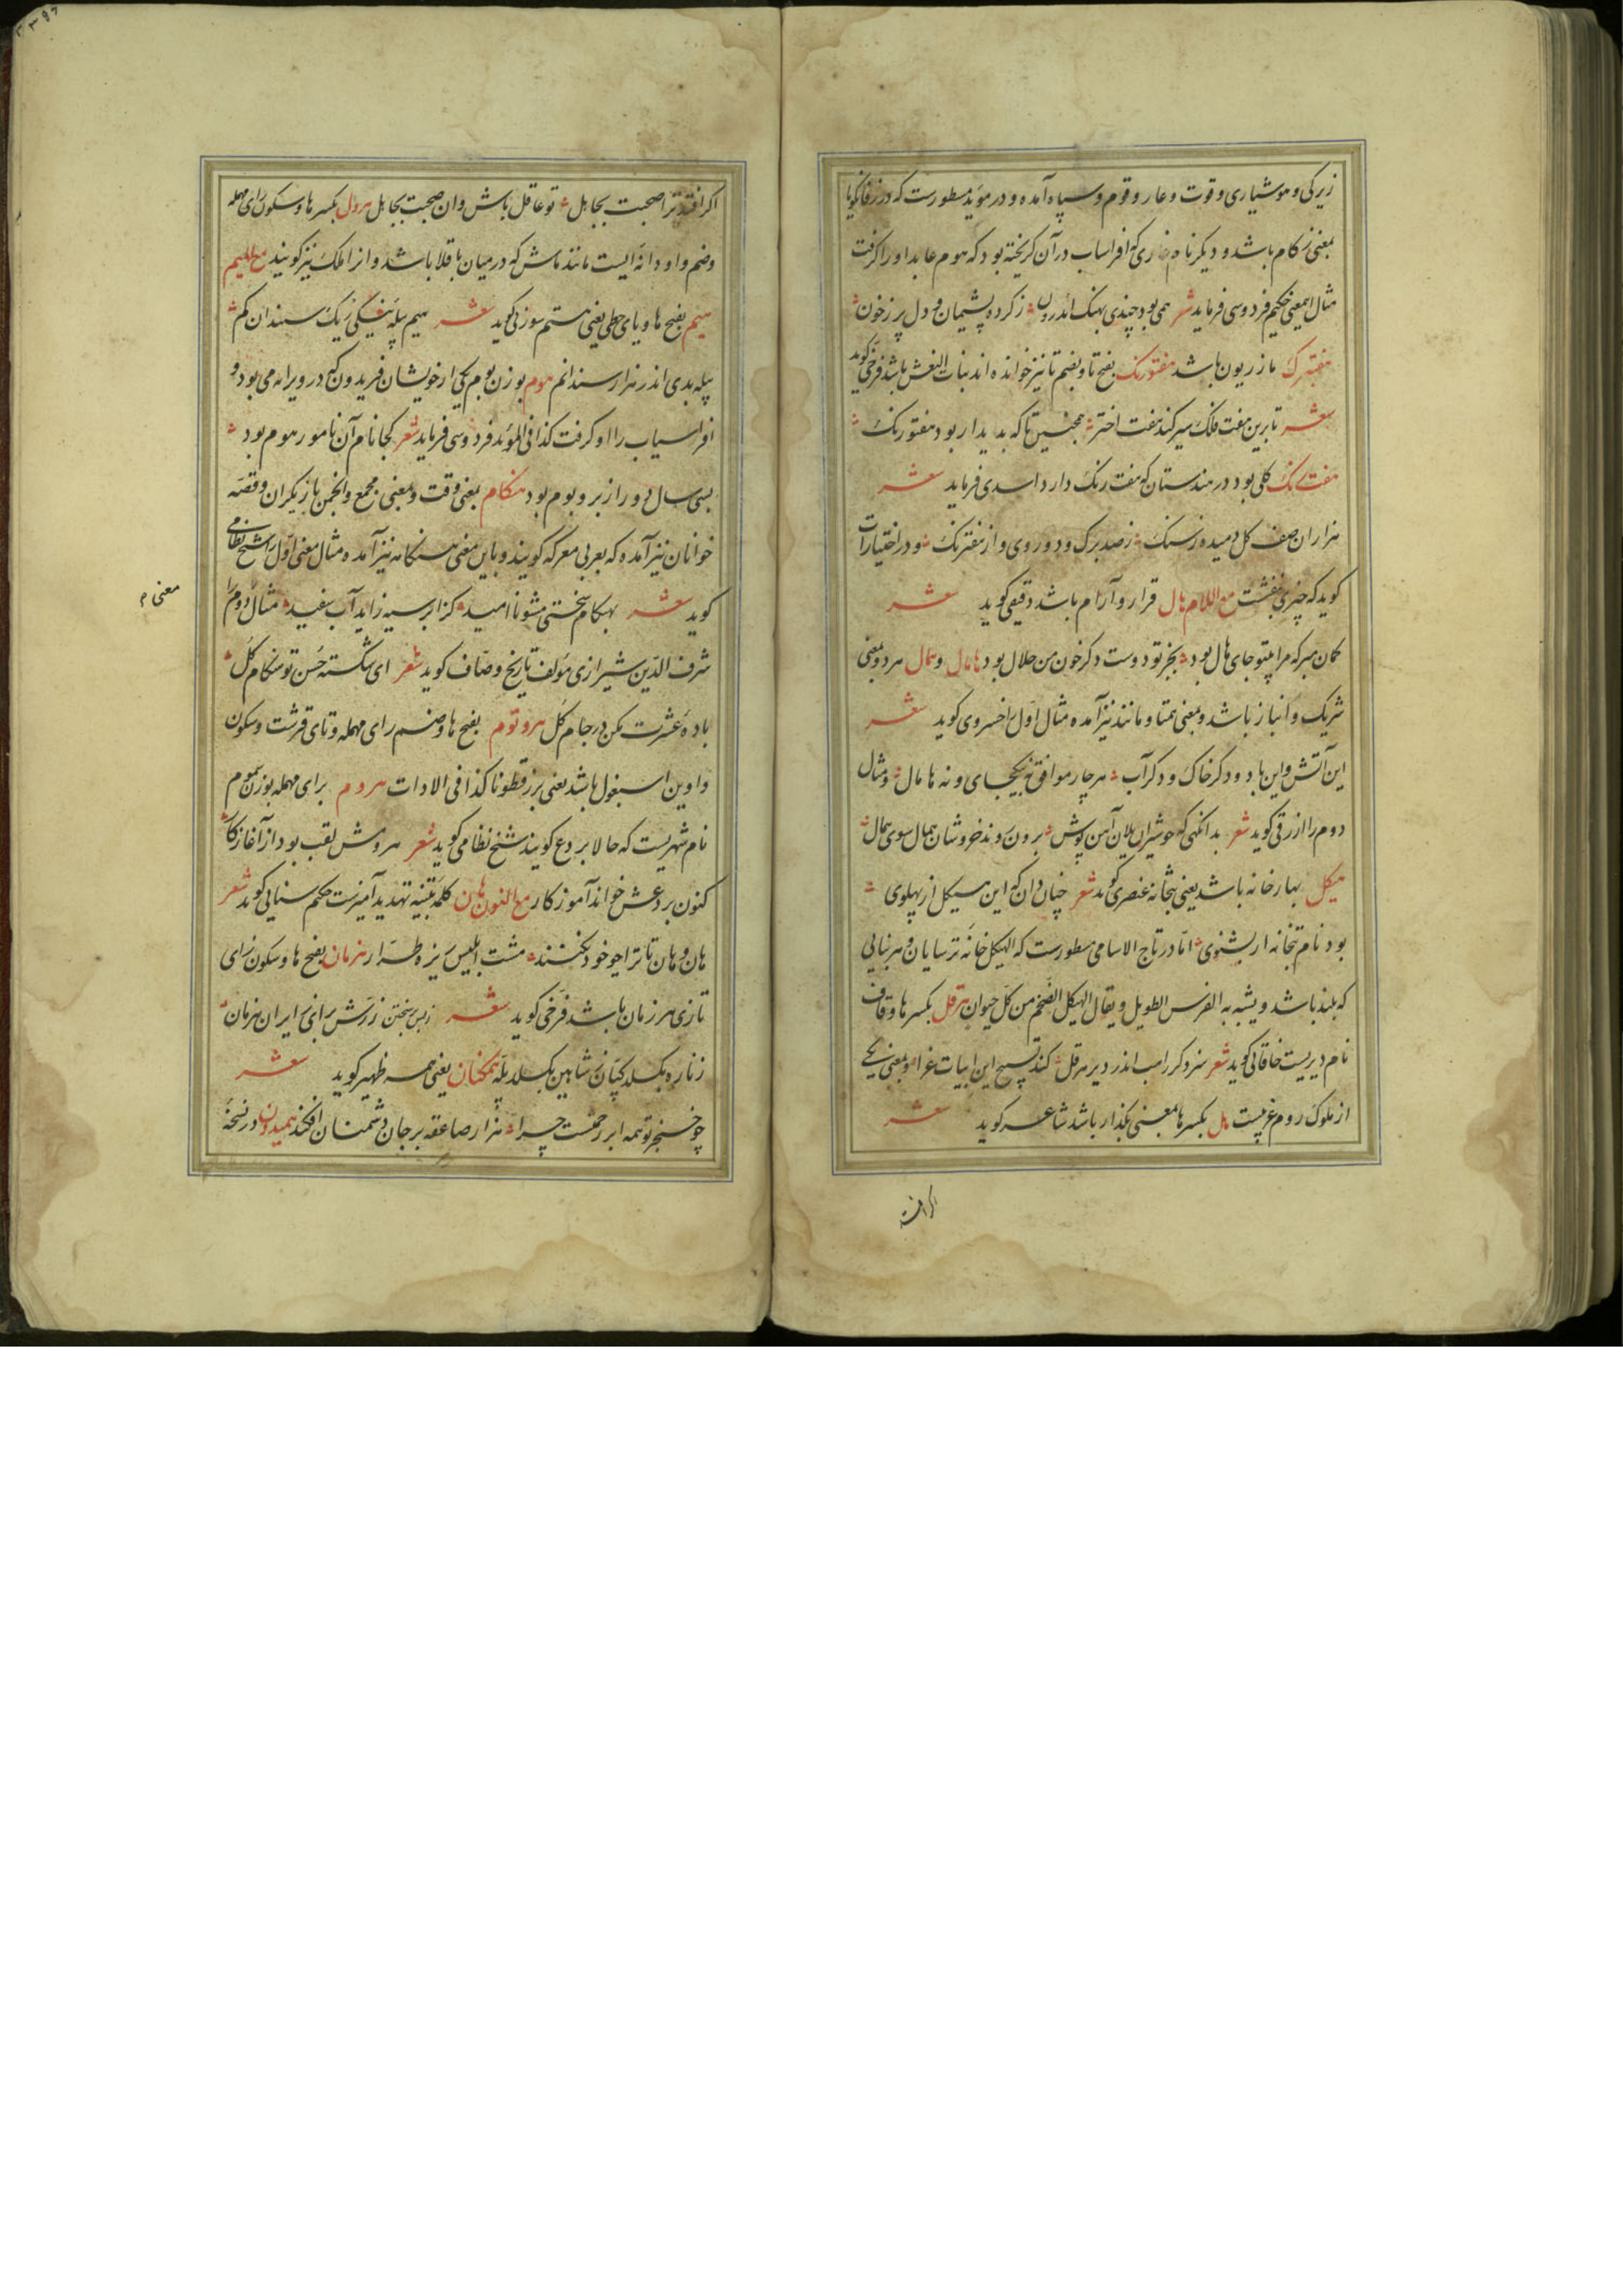 زیرکی و هوشیاری و قوت و عار و قوم و سپاه آمده و در موید مسطورست که در زفان کویا
بمعنی زکام باشد و دیکر نام غاری که افراسیاب در آن کریخته بود که هوم عابد او را کرفت
مثال این معنی حکیم فردوسی فرماید شعر همی بود چندی بهنک اندرون ز کرده پشیمان و دل پر ز خون
مازریون باشد هفتورنک بفتح تا و بضم تا نیز خوانده اند بنات النعش باشد فرخی کوید
شعر تا برین هفت فلک سیر کند هفت اختر همچنین تا که بدیدار بود هفتورنک
هفت رنک کلی بود در هندستان که هفت رنک دارد اسدی فرماید شعر
هزاران صف کل دمیده ز سنک ز صد برک و دو روی و از هفترنک و در اختیارات
کوید که چیزی بنفشست مع اللام هال قرار و آرام باشد دقیقی کوید شعر
کمان مبر که مرا بیتو جای هال بود بجز تو دوست دکر خون من حلال بود هامال و همال هر دو بمعنی
شریک و انباز باشد و بمعنی همتا و مانند نیز آمده مثال اول را خسروی کوید شعر
این آتش و این باد و دکر خاک و دکر آب هر چار موافق نه بیکجای و نه هامال و مثال
دوم را ازرقی کوید شعر بدانکهی که جو شیران یلان آهن پوش برون روند خروشان همال سوی همال
هیکل بهارخانه باشد یعنی بتخانه عنصری کوید شعر چنان دان که این هیکل از پهلوی
بود نام بتخانه ار بشنوی اما در تاج الاسامی مسطورست که الهیکل خانه ترسایان و هر بنایی
که بلند باشد و یشبه به الفرس الطویل و یقال الهیکل الضخم من کل حیوان هرقل بکسر ها و قاف
نام دیریست خاقانی کوید شعر سزد کر راهب اندر دیر هرقل کند تسبیح این ابیات غرا و بمعنی یکی
از ملوک روم عربیست هل بکسر ها بمعنی بکذار باشد شاعر کوید شعر
اکر افتد
اکر افتد ترا صحبت بجاهل تو عاقل باش و ان صحبت بجاهل هرول بکسر ها و سکون رای مهمله
و ضم واو دانه ایست مانند ماش که در میان باقلا باشد و انرا ملک نیز کویند مع المیم
هیم بفتح ها و یای حطی یعنی هستم سوزنی کوید شعر هیم پله نیکی ز یک سندان کم
پله بدی اندر هزار سندانم هوم بوزن بوم یکی از خویشان فریدون که در ویرانه می بود و
افراسیاب را او کرفت کذا فی الموید فردوسی فرماید شعر کجا نام آن نامور هوم بود
بسی سال دور از بر و بوم بود هنکام بمعنی وقت و بمعنی مجمع و انجمن بازیکران و قصه
خوانان نیز آمده که بعربی معرکه کویند و باین معنی هنکامه نیز آمده مثال معنی اول را شیخ نظامی
کوید شعر بهنکام سختی مشو ناامید کز ابر سیه زاید آب سفید مثال دوم را
معنی
شرف الدین شیرازی مولف تاریخ وصاف کوید شعر ای شکسته حسن تو هنکام کل
باده عشرت بکن در جام کل هروتوم بفتح ها و ضم رای مهمله و تای قرشت و سکون
واوین اسبغول باشد یعنی بزرقطونا کذا فی الادات هروم برای مهمله بوزن سموم
نام شهریست که حالا بردع کویند شیخ نظامی کوید شعر هرومش لقب بود از آغاز کار
کنون بردعش خواند آموزکار مع النون هان کلمه تنبیه تهدید آمیزست حکیم سنایی کوید شعر
هان و هان تا ترا چو خود نکنند مشت ابلیس ریزه طرار هزمان بفتح ها و سکون زای
تازی هر زمان باشد فرخی کوید شعر ز بس برسختن زرش برانی ایران هزمان
زناره بکسلد کپان ز شاهین بکسلد پله همکنان یعنی همه ظهیر کوید شعر
چو خنجر تو همه ابر رحمتست چرا هزار صاعقه بر جان دشمنان افکند همیدون در نسخه